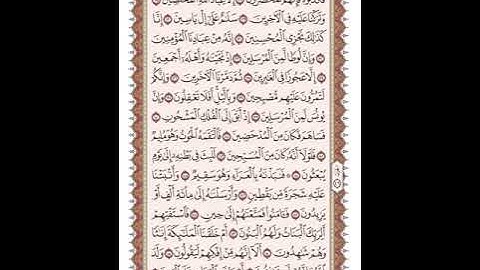 وَتَرَكْنَا عَلَيْهِ فِي ٱلْءَاخِرِينَ ۝ سَلَٰمٌ عَلَىٰٓ إِلْ يَاسِينَ ۝ إِنَّا
كَذَٰلِكَ نَجْزِي ٱلْمُحْسِنِينَ ۝ إِنَّهُۥ مِنْ عِبَادِنَا ٱلْمُؤْمِنِينَ
۝ وَإِنَّ لُوطًا لَّمِنَ ٱلْمُرْسَلِينَ ۝ إِذْ نَجَّيْنَٰهُ وَأَهْلَهُۥٓ أَجْمَعِينَ
۝ إِلَّا عَجُوزًا فِي ٱلْغَٰبِرِينَ ۝ ثُمَّ دَمَّرْنَا ٱلْءَاخَرِينَ ۝ وَإِنَّكُمْ
لَتَمُرُّونَ عَلَيْهِم مُّصْبِحِينَ ۝ وَبِٱلَّيْلِ أَفَلَا تَعْقِلُونَ ۝ وَإِنَّ
يُونُسَ لَمِنَ ٱلْمُرْسَلِينَ ۝ إِذْ أَبَقَ إِلَى ٱلْفُلْكِ ٱلْمَشْحُونِ ۝
فَسَاهَمَ فَكَانَ مِنَ ٱلْمُدْحَضِينَ ۝ فَٱلْتَقَمَهُ ٱلْحُوتُ وَهُوَ مُلِيمٌ
۝ فَلَوْلَآ أَنَّهُۥ كَانَ مِنَ ٱلْمُسَبِّحِينَ ۝ لَلَبِثَ فِي بَطْنِهِۦٓ إِلَىٰ يَوْمِ
يُبْعَثُونَ ۝ فَنَبَذْنَٰهُ بِٱلْعَرَآءِ وَهُوَ سَقِيمٌ ۝ وَأَنۢبَتْنَا
عَلَيْهِ شَجَرَةً مِّن يَقْطِينٍ ۝ وَأَرْسَلْنَٰهُ إِلَىٰ مِا۟ئَةِ أَلْفٍ أَوْ
يَزِيدُونَ ۝ فَـَٔامَنُوا۟ فَمَتَّعْنَٰهُمْ إِلَىٰ حِينٍ ۝ فَٱسْتَفْتِهِمْ
أَلِرَبِّكَ ٱلْبَنَاتُ وَلَهُمُ ٱلْبَنُونَ ۝ أَمْ خَلَقْنَا ٱلْمَلَٰٓئِكَةَ إِنَٰثًا
وَهُمْ شَٰهِدُونَ ۝ أَلَآ إِنَّهُم مِّنْ إِفْكِهِمْ لَيَقُولُونَ ۝ وَلَدَ